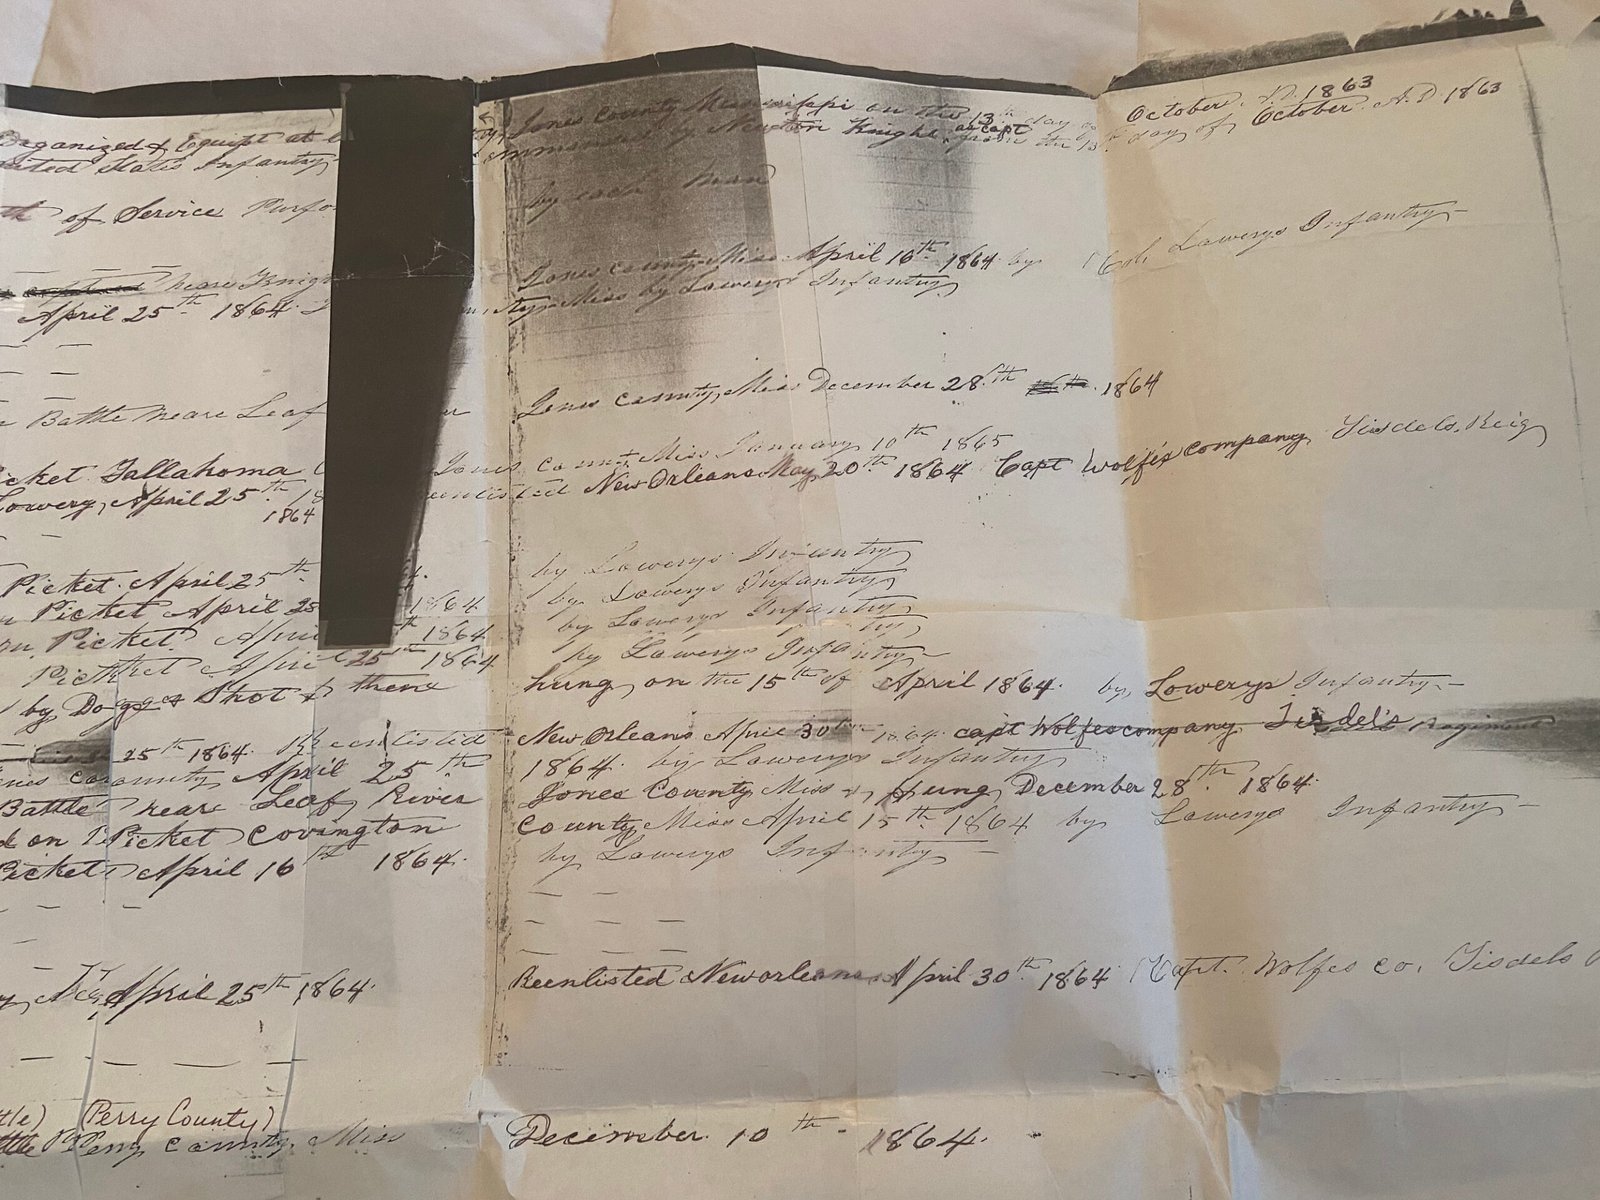 Jones County Mississippi on the 13th day of October A.D. 1863
Organized & Equipt at
commanded by Newton Knight as Capt from the 13th day of October A.D. 1863
States Infantry
by each man
of Service
Jones county Miss April 16th 1864 by Col. Lowerys Infantry
neare Knigh
Miss by Lowerys Infantry
April 25th 1864
Jones County, Miss December 28th 1864
Battle neare Leaf
Jones County Miss January 10th 1865
Picket Tallahoma
enlisted New Orleans May 20th 1864 Capt Wolfes company, Tisdels, Reig
Lowery, April 25th 18
1864
by Lowerys Infantry
Picket April 25th
by Lowerys Infantry
Picket April 25 1864
by Lowerys Infantry
on Picket April th 1864
by Lowerys Infantry
Pickket April 25th 1864
hung on the 15th of April 1864. by Lowerys Infantry
by Doggs & Shot & then
New Orleans April 30th 1864 capt Wolfes company Tisdel's regiment
25th 1864. Reenlisted
1864. by Lowerys Infantry
county April 25th
Jones County Miss & Hung December 28th 1864.
Battle neare Leaf River
County Miss April 15th 1864 by Lowerys Infantry
on Picket Covington
by Lowerys Infantry
Picket April 16th 1864.
Reenlisted New orleans April 30th 1864 Capt. Wolfes Co. Tisdels
April 25th 1864.
(Perry County)
Perry County, Miss December 10th 1864.